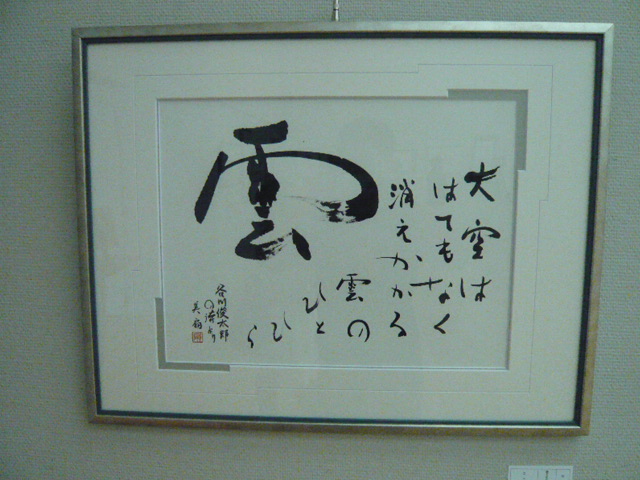 大空は
はてもなく
消えかかる
雲の
ひと
ひ
ら
雲
谷川俊太郎
の詩より